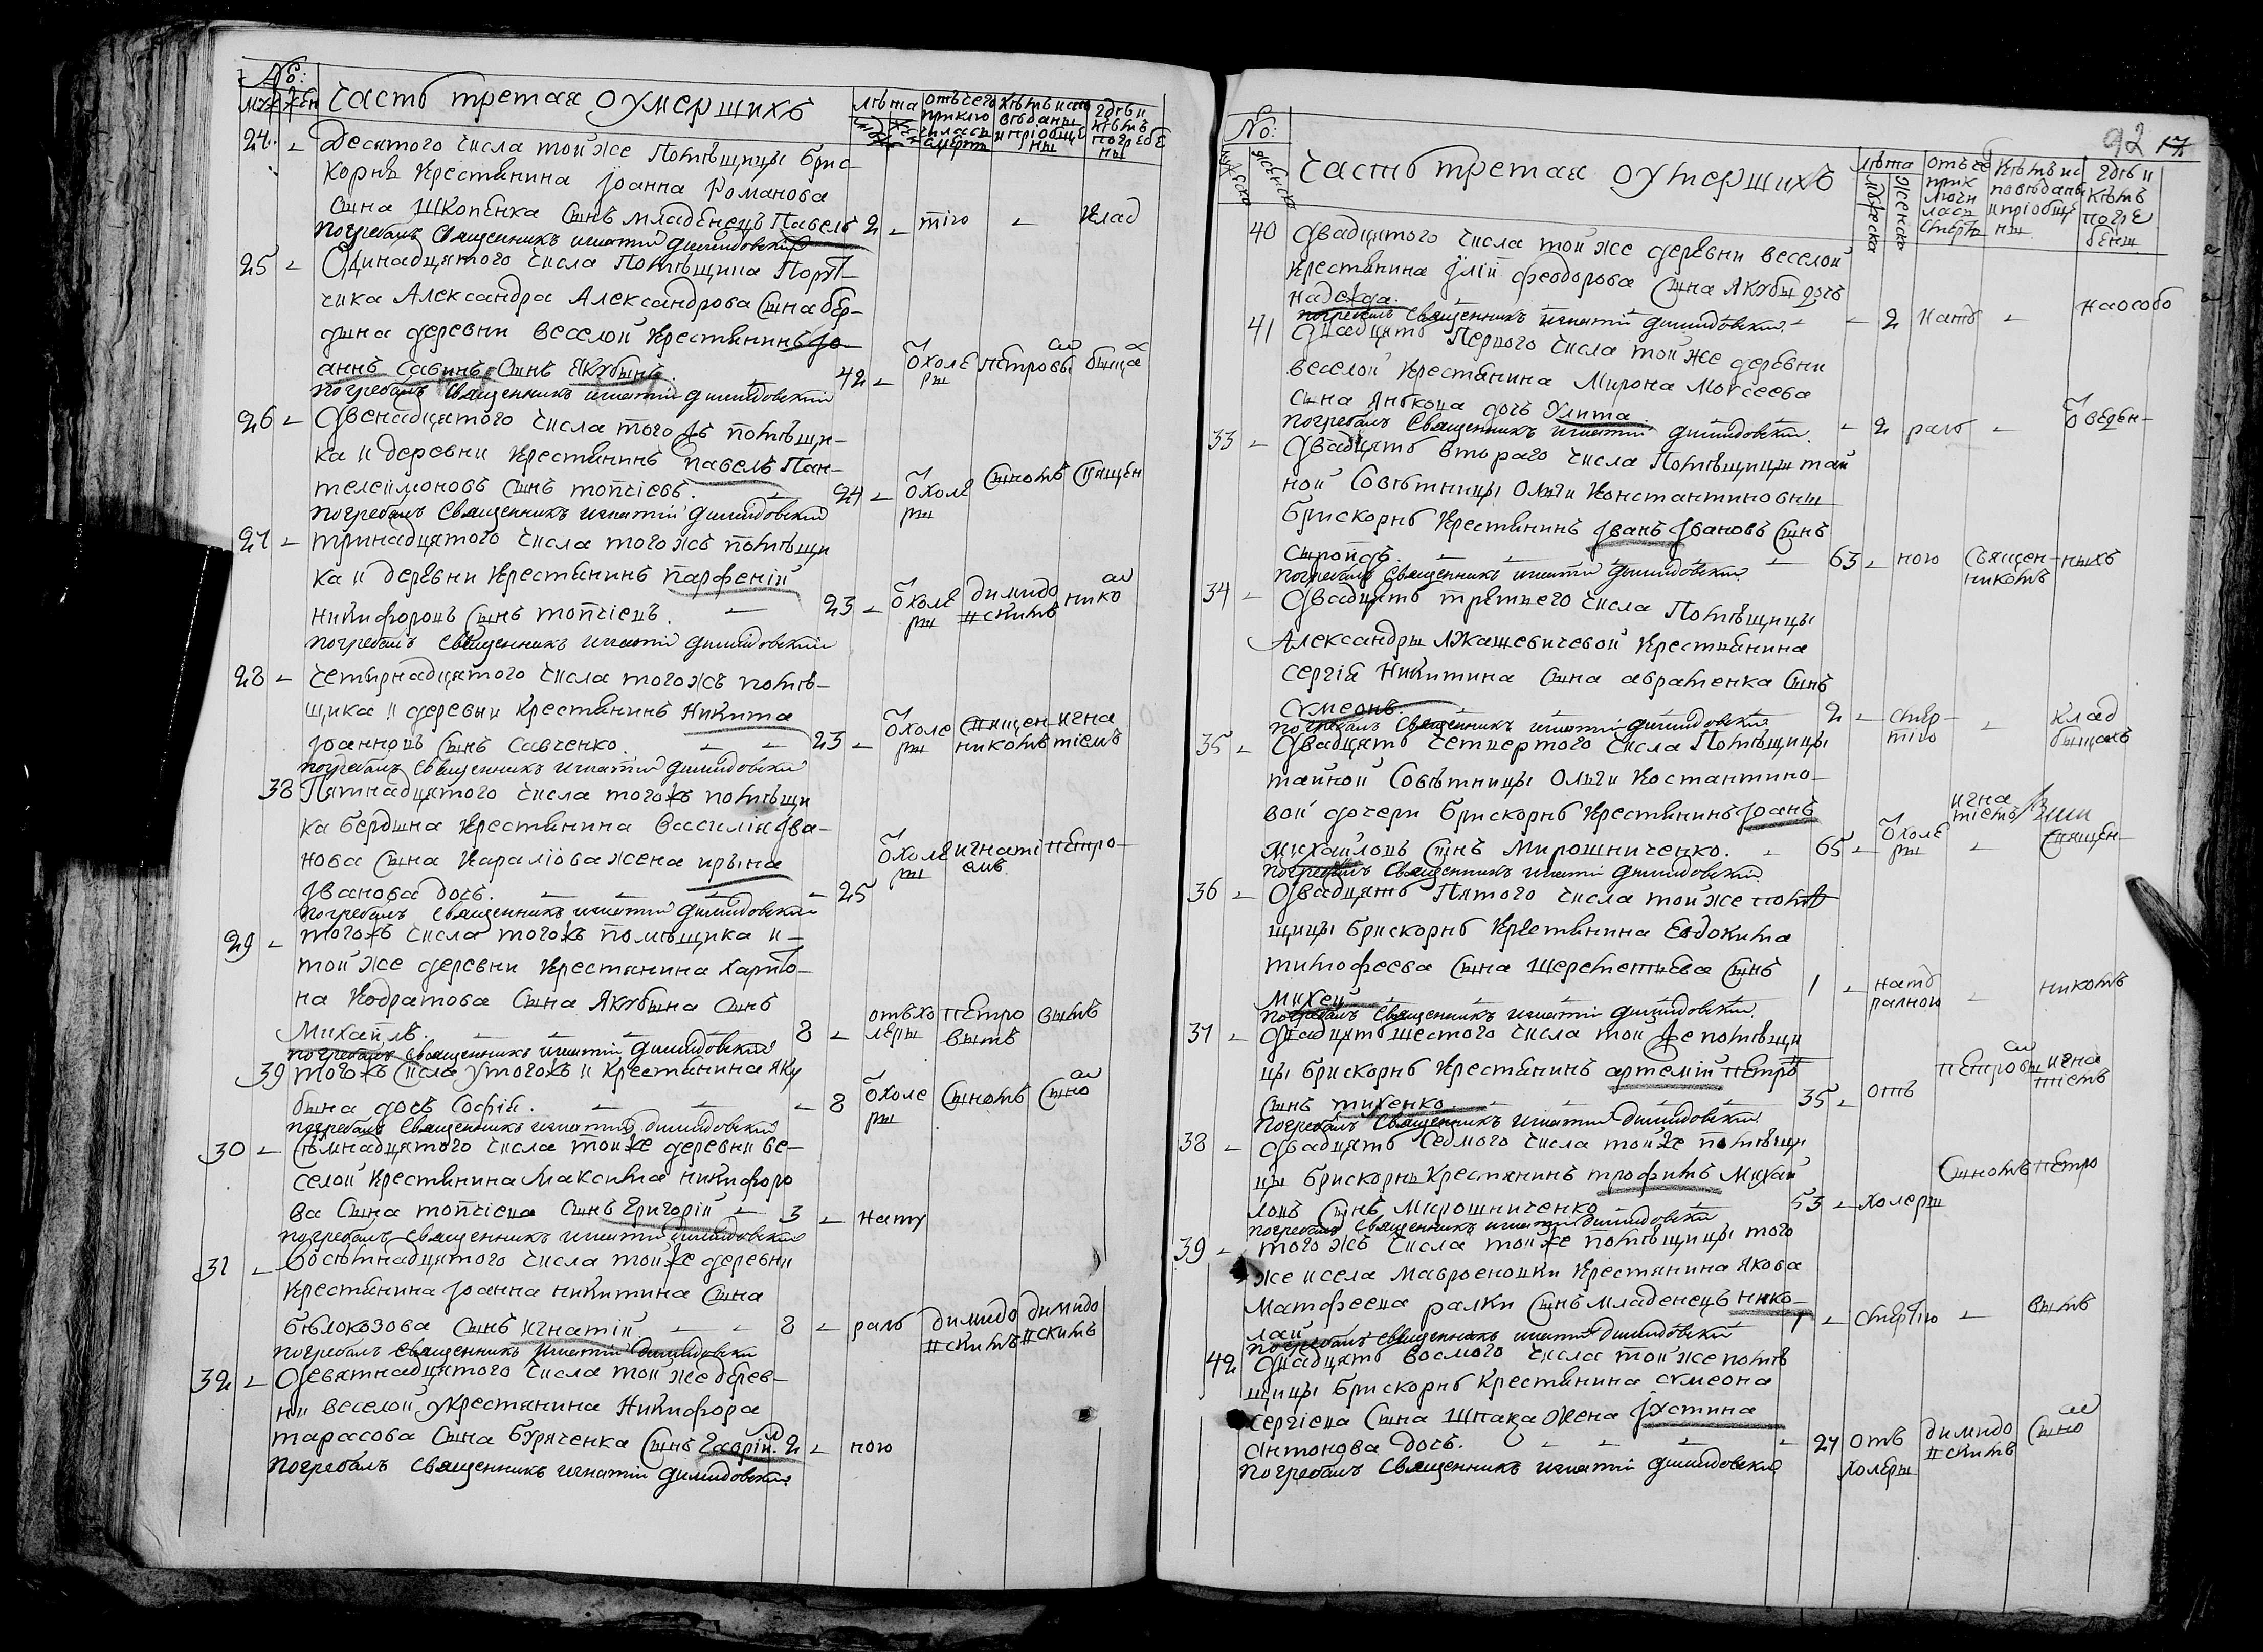 №:
муж жен Часть третая оумершихъ
24 - Десятого числа той же Помѣщицы Брис-
корнѣ Крестянина Іоанна Романова
сына Шкопенка сынъ младенецъ Павелъ 2 - тію - Клад
погребалъ Священникъ игнатий Димидовский
25 - Одинадцятого числа Помѣщика Порут-
чика Александра Александрова сына Бер-
дына деревни веселой Крестянинъ Іо-
аннъ Савинъ сынъ Якубынъ. 42 - Ѿ холе ры петровы бища
погребалъ Священникъ игнатий Димидовский
26 - Двенадцятого числа того жъ помѣщи-
ка и деревни Крестянинъ павелъ Пан-
телеймоновъ сынъ топчіевъ. 24 - Ѿ холе ры сыномъ Священ
погребалъ Священникъ игнатий Димидовский
27 - тринадцятого числа того жъ помѣщи
ка и деревни Крестянинъ парфеній
никифоровъ сынъ топчіевъ. 23 - Ѿ холе ры димидо вскимъ нико
погребалъ Священникъ игнатий Димидовский
28 - четырнадцятого числа того жъ помѣ-
щика и деревни Крестянинъ Никита
Іоанновъ сынъ Савченко. 23 - Ѿ холе ры Священ никомъ игна тіемъ
погребалъ Священникъ игнатий Димидовский
38 Пятнадцятого числа того жъ помѣщи
ка Бердына Крестянина Василія Ива-
нова сына Караліова жена ирына
Иванова дочь. - 25 Ѿ холе ры игнаті емъ петро-
погребалъ Священникъ игнатий Димидовский
29 - того жъ числа того жъ помѣщика и
той же деревни Крестянина Харито-
на Кодратова сына Якубына сынъ
Михаилъ. 8 - отъ хо леры петро вымъ вымъ
погребалъ Священникъ игнатий Димидовский
39 того жъ числа у того жъ и Крестянина Яку
бына дочь Софія. - 8 Ѿ холе ры сыномъ сыно
погребалъ Священникъ игнатий Димидовский
30 - Семнадцятого числа той же деревни ве-
селой Крестянина Максима никифоро
ва сына топчіева сынъ Григорій - 3 - нату
погребалъ Священникъ игнатий Димидовский
31 - Восѣмнадцятого числа той же деревни
Крестянина Іоанна никитина сына
бѣлокозова сынъ игнатій 8 - раль димидо вскимъ димидо вскимъ
погребалъ Священникъ игнатий Димидовский
32 - Девятнадцятого числа той же дерев-
ни веселой у крестянина Никифора
тарасова сына Буряченка сынъ Гавріил. 2 - ною
погребалъ Священникъ игнатий Димидовский
92
№:
Часть третая оумершихъ
40 Двадцятого числа той же деревни веселой
Крестянина Іліи феодорова сына Якубы дочь
надежда. - 2 нать - на особо
погребалъ Священникъ игнатий Димидовский
41 Двадцять Первого числа той же деревни
веселой Крестянина Мирона Моvсеева
сына Янькова дочь Улита - 2 раль - Ѿ веден-
погребалъ Священникъ игнатий Димидовский.
33 - Двадцять втораго числа Помѣщицы тай
ной Совѣтницы Ольги Константиновны
Брискорнь Крестянинъ Іванъ Івановъ сынъ
Стройдъ. 63 - ною Священ никомъ ныхъ
погребалъ Священникъ игнатий Димидовский
34 - Двадцять третьего числа Помѣщицы
Александры Лукашевичевой Крестянина
Сергій Никитина сына авраменка сынъ
Сѵмеонъ. 2 - смер тію - клад бищахъ
погребалъ Священникъ игнатий Димидовский
35 - Двадцять четвертого числа Помѣщицы
тайной Совѣтницы Ольги Костантино-
вой дочери Брискорнь Крестянинъ Іоанъ
Михаиловъ сынъ Мирошниченко. - 65 - Ѿ холе ры игна тіемъ - Священ-
погребалъ Священникъ игнатий Димидовский
36 - Двадцять Пятого числа той же помѣ
щицы Брискорнь Крестянина Евдокима
тимофеева сына Шереметиева сынъ
Михей 1 - нату ралною - никомъ
погребалъ Священникъ игнатий Димидовский.
37 - Двадцять шестого числа той же помѣщи
цы Брискорнь Крестянинъ артемій петро
сынъ тихенко 35 - отъ петровы игна тіемъ
погребалъ Священникъ игнатий Димидовский
38 - Двадцять седмого числа той же помѣщи
цы Брискорнь Крестянинъ трофимъ Михай
ловъ сынъ Мирошниченко 53 - холеры сыномъ петро
погребалъ Священникъ игнатий Димидовский
39 - того жъ числа той же помѣщицы того
же и села Мавроеношки Крестянина Якова
Матфеева ралки сынъ младенецъ нико-
лай 1 - смертію - вымъ
погребалъ Священникъ игнатий Димидовский
42 Двадцять восмого числа той же помѣ
щицы Брискорнь Крестянина сѵмеона
Сергіева сына Шпака жена Іустина
Антонова дочь. - 27 отъ холеры димидо вскимъ сыно
погребалъ Священникъ игнатий Димидовский